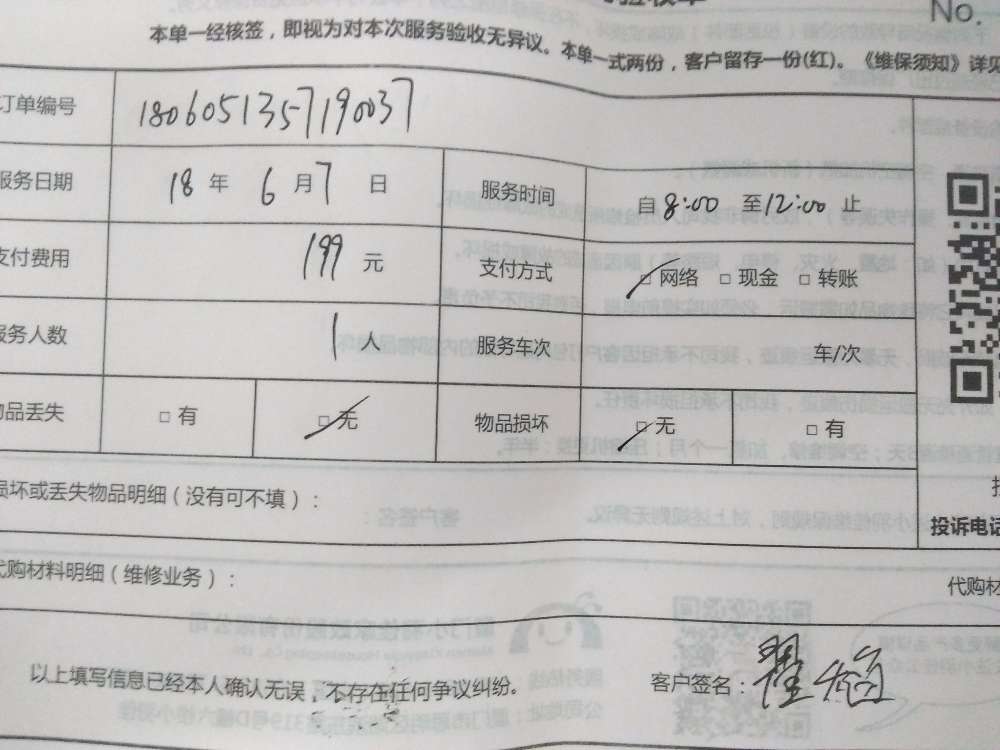 No.
本单一经核签，即视为对本次服务验收无异议。本单一式两份，客户留存一份(红)。《维保须知》详见
订单编号 1806051357190037
服务日期 18 年 6 月 7 日 服务时间 自 8:00 至 12:00 止
支付费用 199 元 支付方式 □ 网络 □ 现金 □ 转账
服务人数 1 人 服务车次 车/次
物品丢失 □ 有 □ 无 物品损坏 □ 无 □ 有
损坏或丢失物品明细（没有可不填）：
投诉电话
代购材料明细（维修业务）：
代购材
以上填写信息已经本人确认无误，不存在任何争议纠纷。
客户签名：翟